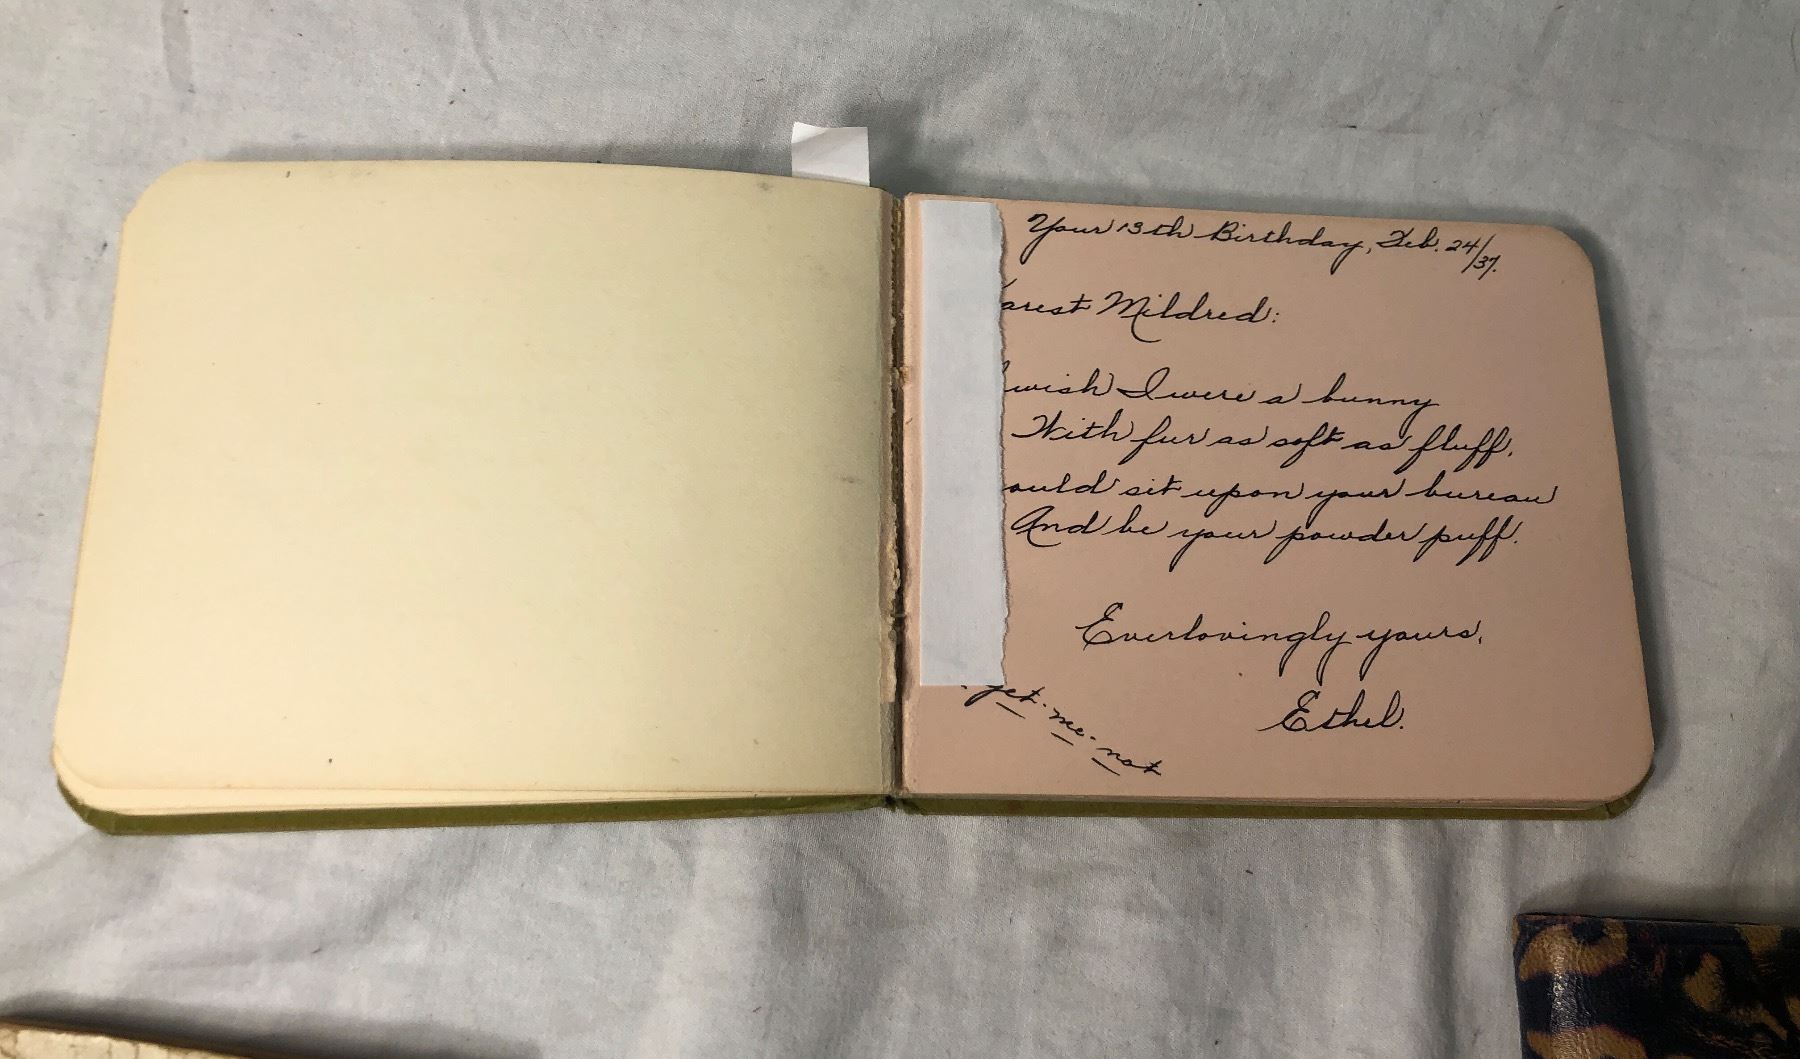 Your 13th Birthday, Feb. 24/37.
arest Mildred:
wish I were a bunny
With fur as soft as fluff,
ould sit upon your bureau
And be your powder puff.
Everlovingly yours,
Ethel.
get-me-not